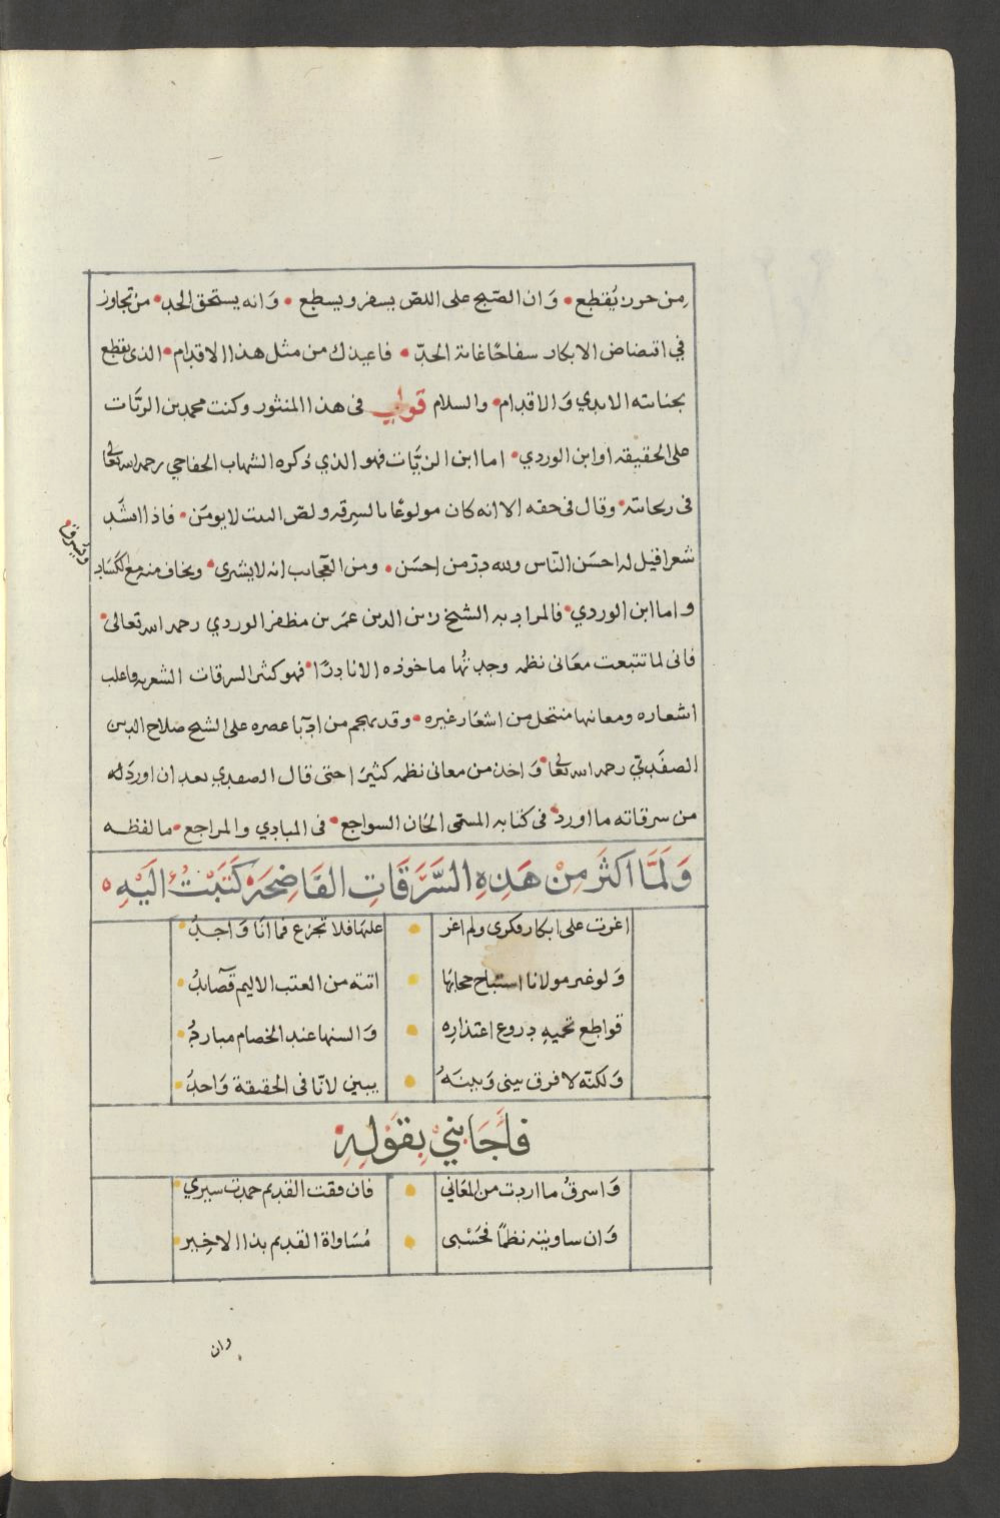 من حرز يُقطع • وَان الصّبح على اللصّ يسفر ويسطع • وَانه يستحق الحد • من تجاوز
في افتضاض الابكار سفاحًا غاية الحدّ • فاعيذك من مثل هذا الاقدام • الذى يقطع
بجنايته الايدي وَالاقدام • والسلام قولي فى هذا المنثور وكنت محمد بن الزيّات
على الحقيقه اوابن الوردي • اما ابن الزيّات فهو الذي ذكره الشهاب الخفاجي رحمه الله تعالى
فى ريحانته • وقال فى حقه الا انه كان مولوعًا بالسرقه ولصّ البيت لا يومَن • فاذا انشَد
شعرا قيل له احسَن النّاس ولله درّ من احسَن • ومن العجايب انه لا يشترى • ويخاف منه مع الكسَاد
ويسرق
واما ابن الوردي • فالمراد به الشيخ زين الدين عمَر بن مظفر الوردي رحمه الله تعالى •
فانى لما تتبعت معَانى نظمه وجدتُها ماخوذه الا نادرًا • فهو كثير السرقات الشعريه واغلب
اشعاره ومعانيها منتحل من اشعَار غيره • وقد يهجم من ادبَا عصره على الشيخ صَلاح الدين
الصفَديّ رحمه الله تعالى • وَاخذ من معانى نظمه كثيرَا حتى قال الصفدي بعد ان اورد له
من سرقاته ما اورد • فى كتابه المسمّى الحان السواجع • فى المبادي والمراجع • ما لفظه
وَلَمَّا اكثَرَ مِنْ هَذِهِ السَّرَقَاتِ الفَاضِحَةِ كَتَبْتُ اليَهِ
اغرت على ابكار فكرى ولم اغر • عليهَا فلا تجزع فما انَا وَاجدُ •
وَلو غير مولانا استباح حجابها • اتته من العتب الاليم قصَايدُ •
قواطع تحميهِ دروع اعتذارِه • وَالسنها عند الخصام مباردُ •
وَلكنّه لا فرق بينى وَبينَهُ • يبين لانّا فى الحقيقة وَاحدُ •
فأجَابني بِقَوْلِهِ
وَاسرقُ ما اردت من المعَاني • فان فقت القديم حمدت سيري •
وَان ساويته نظمًا فحَسْبى • مُسَاواة القديم بذا الاخِير •
وان